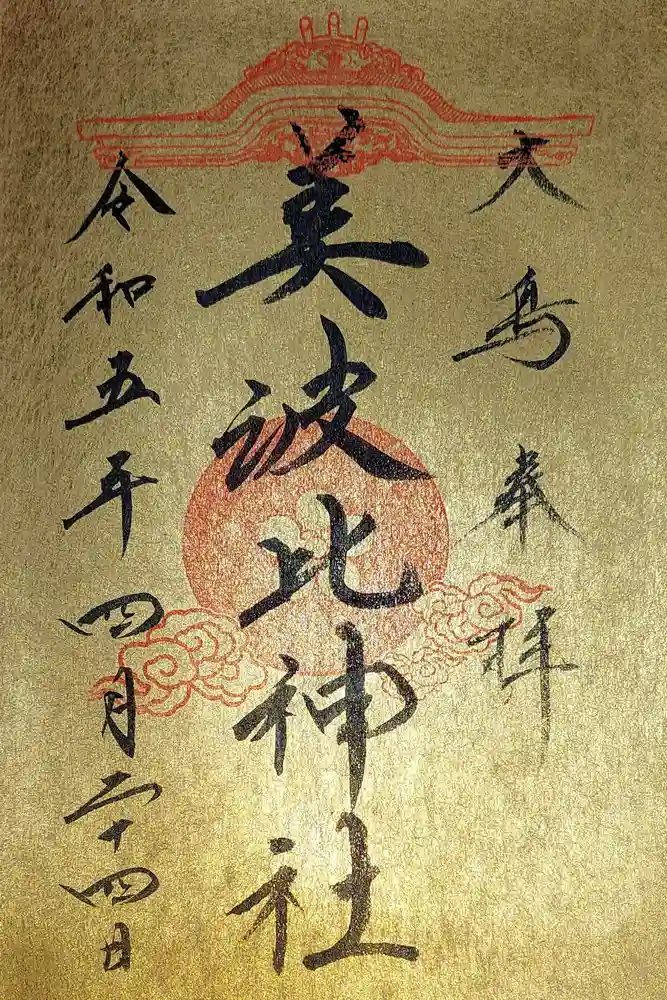 大島奉拝
美波比神社
令和五年四月二十四日